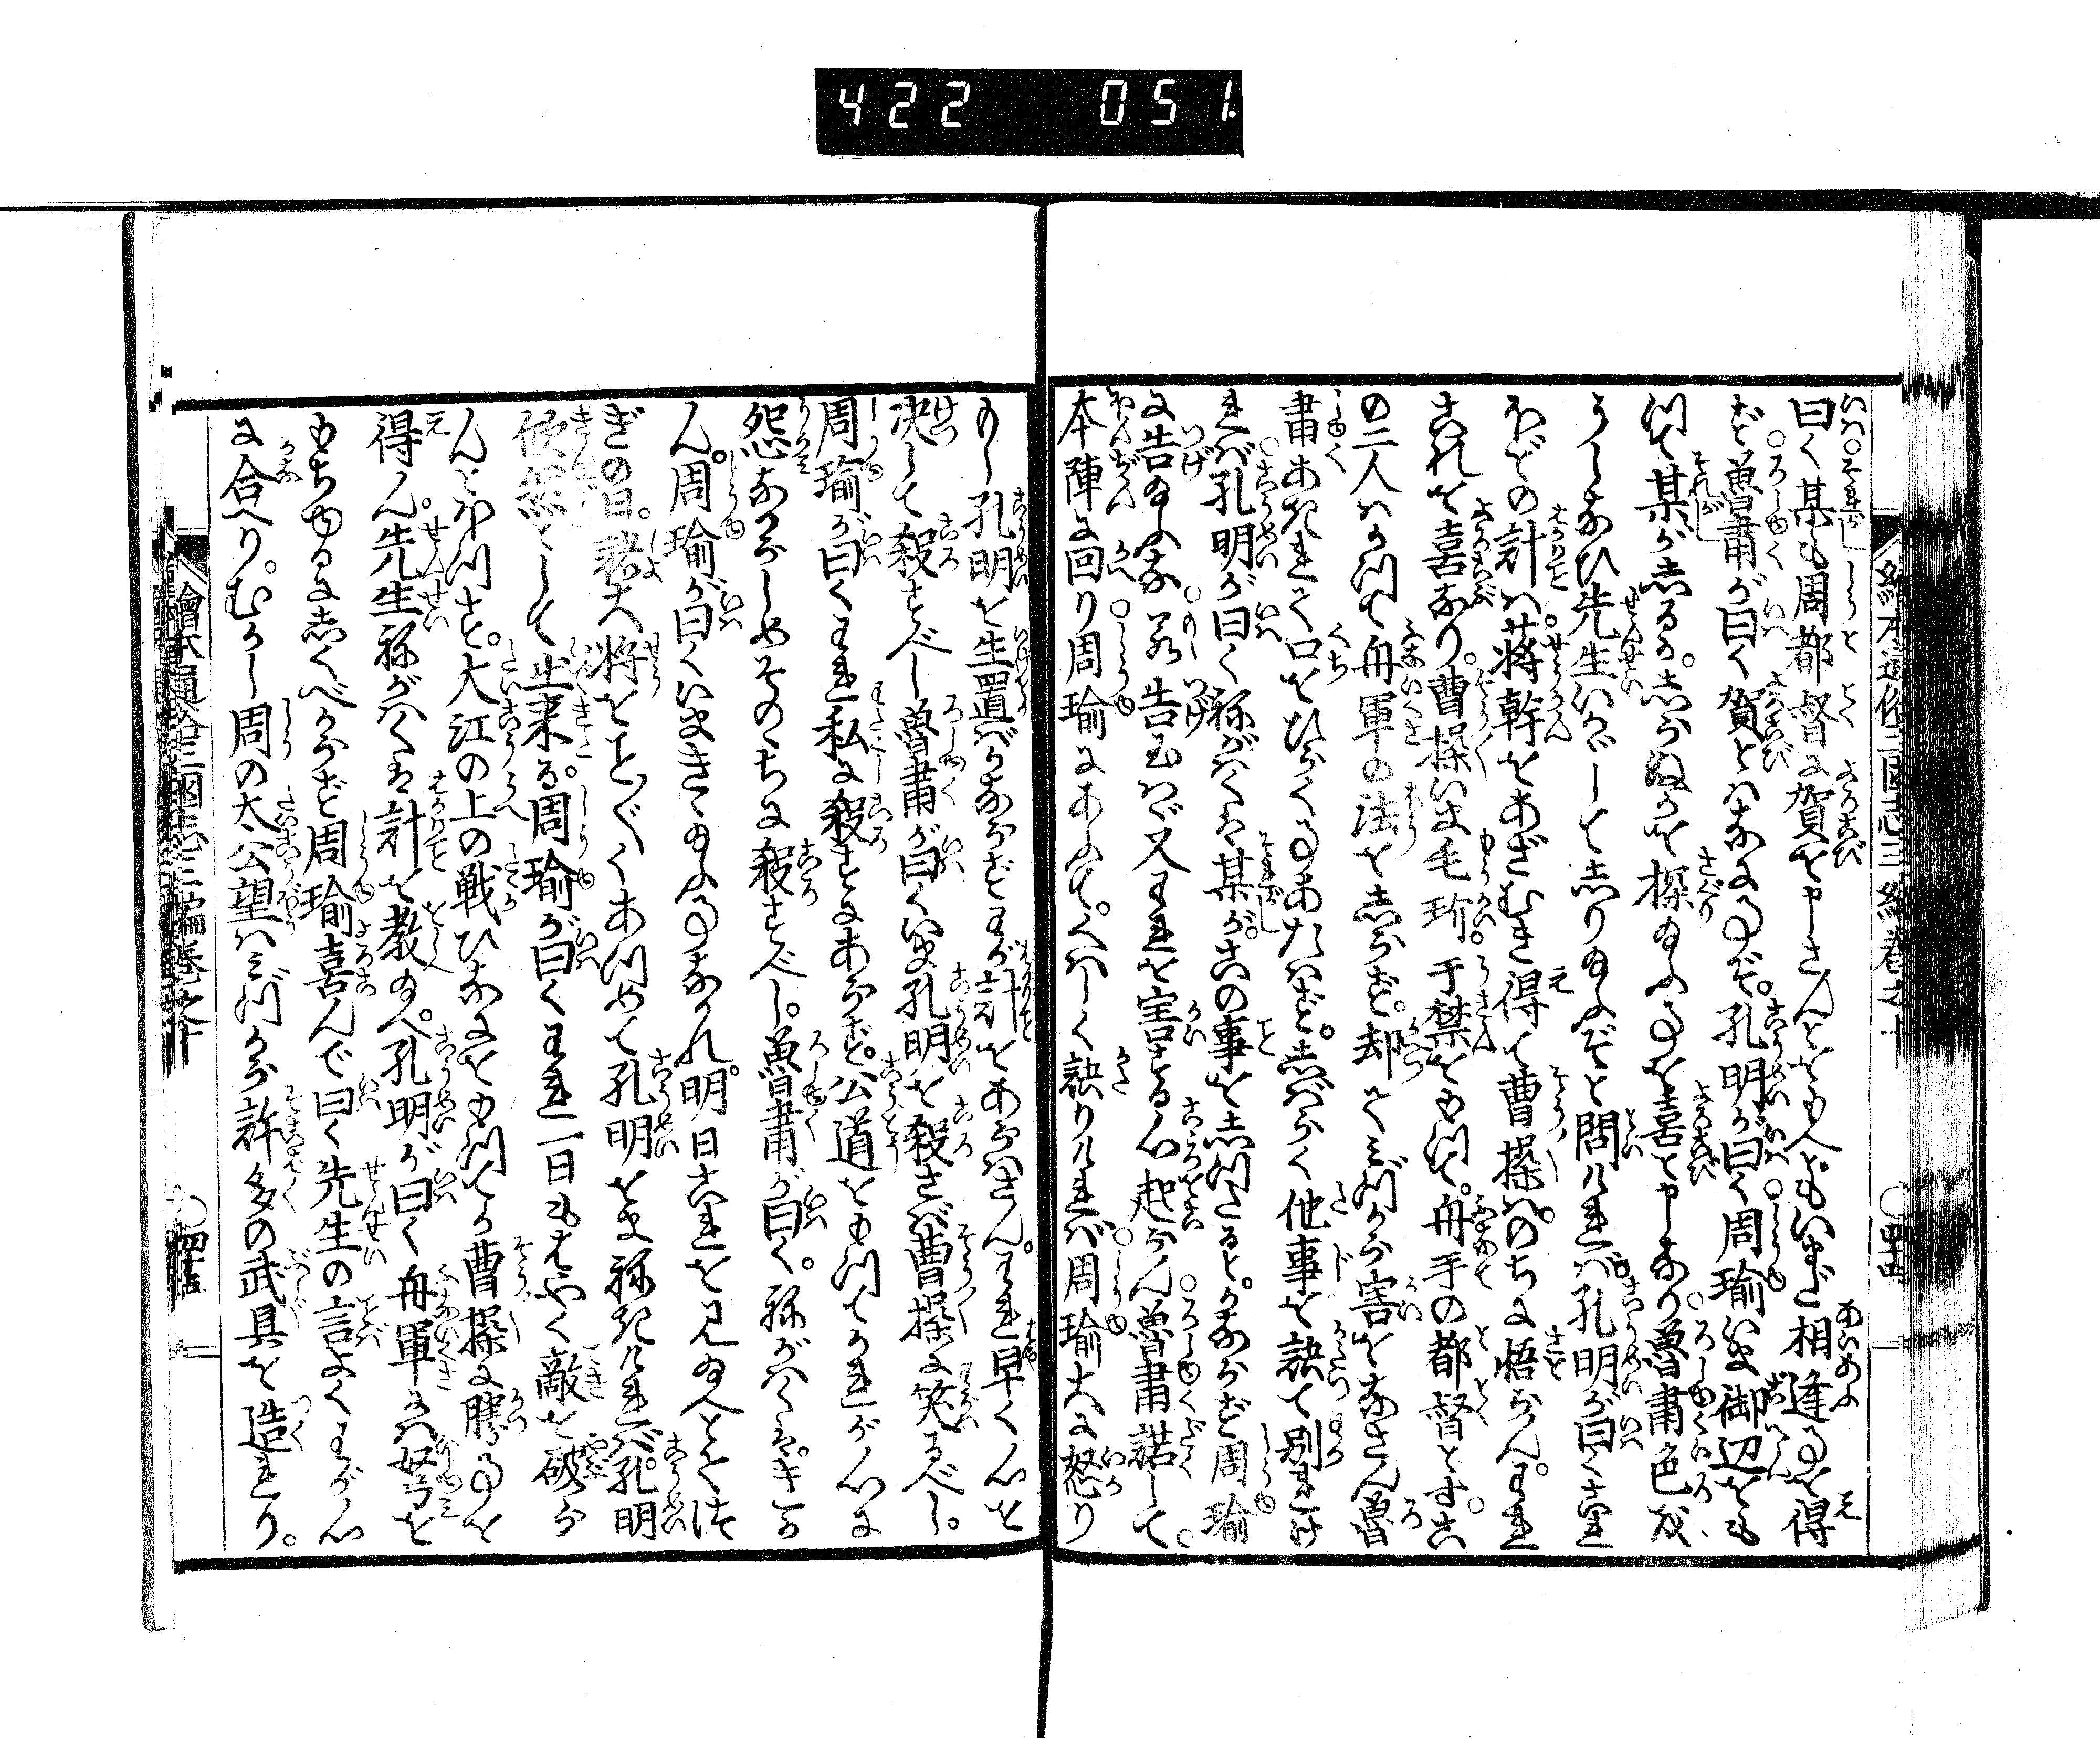 422 051
曰く某も周都督に賀を申さんとをもへどもいまだ相逢ことを得
ず魯粛が曰く賀とはなにことぞ。孔明が曰く周瑜いま御辺をも
つて某がしるかしらぬかを探り給ふことを喜び申なり魯粛色を
うしなひ先生いかゞして しり給ふぞと問ければ孔明が曰くこれ
ほどの計は。蒋幹をあざむき得て曹操は。のちに悟らん。われ
これを喜なり。曹操いま毛玠。于禁をもつて。舟手の都督とす。こ
の二人はかつて舟軍の法をしらず。却てみづから害をなさん魯
粛あきれて口をひらくことあたはず。しばらく他事を談て別れけ
れば孔明が曰く 某が。この事をしつたると。かならず周瑜
に告給ふな 告玉はゞ又われを害する心起らん魯粛諾して。
本陣に回り周瑜にあふて。くはしく談りければ周瑜大に怒り
もし孔明を生置べからずわが計をあらはさん。われ早く心を
決して殺すべし魯粛が曰くいま孔明を殺さば曹操に笑るべし。
周瑜が曰くわれ私に殺すにあらず。公道をもつてかれが心に
怨なからしめそのちに殺すべし。魯粛が曰く。
ん。周瑜が曰くいまきゝ給ふことなかれ。明日これを見給へとてつ
ぎの日。諸大将をことごとくあつめて孔明をまねきければ孔明
欣然として出来る。周瑜が曰くわれ一日もはやく敵を破ら
んとほつす。大江の上の戦ひなにをもつてか曹操に勝ことを
得ん。先生 計を教給へ。孔明が曰く舟軍には弩弓を
もちゆるにしくべからず周瑜喜んで曰く先生の言よくわが心
に合へり。むかし周の大公望はみづから許多の武具を造れり。
繪本通俗三國志三編巻之十